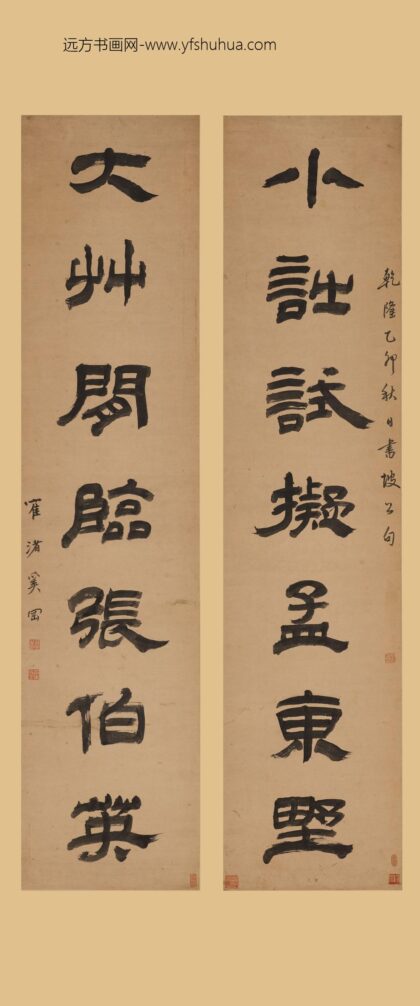 远方书画网-www.yfshuhua.com
乾隆乙卯秋日書坡公句
小詩試擬孟東墅
大艸閒臨張伯英
寉渚奚岡